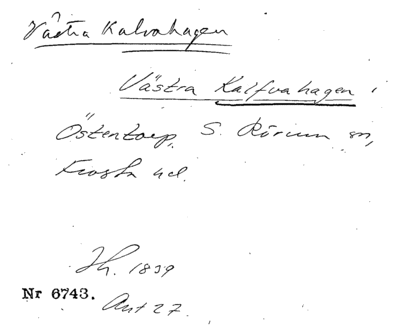 Västra Kalvahagen
Västra Kalfvahagen i
Östentorp, S. Rörum sn,
Frosta hd.
Jh. 1839
Nr 6743.
Akt 27.